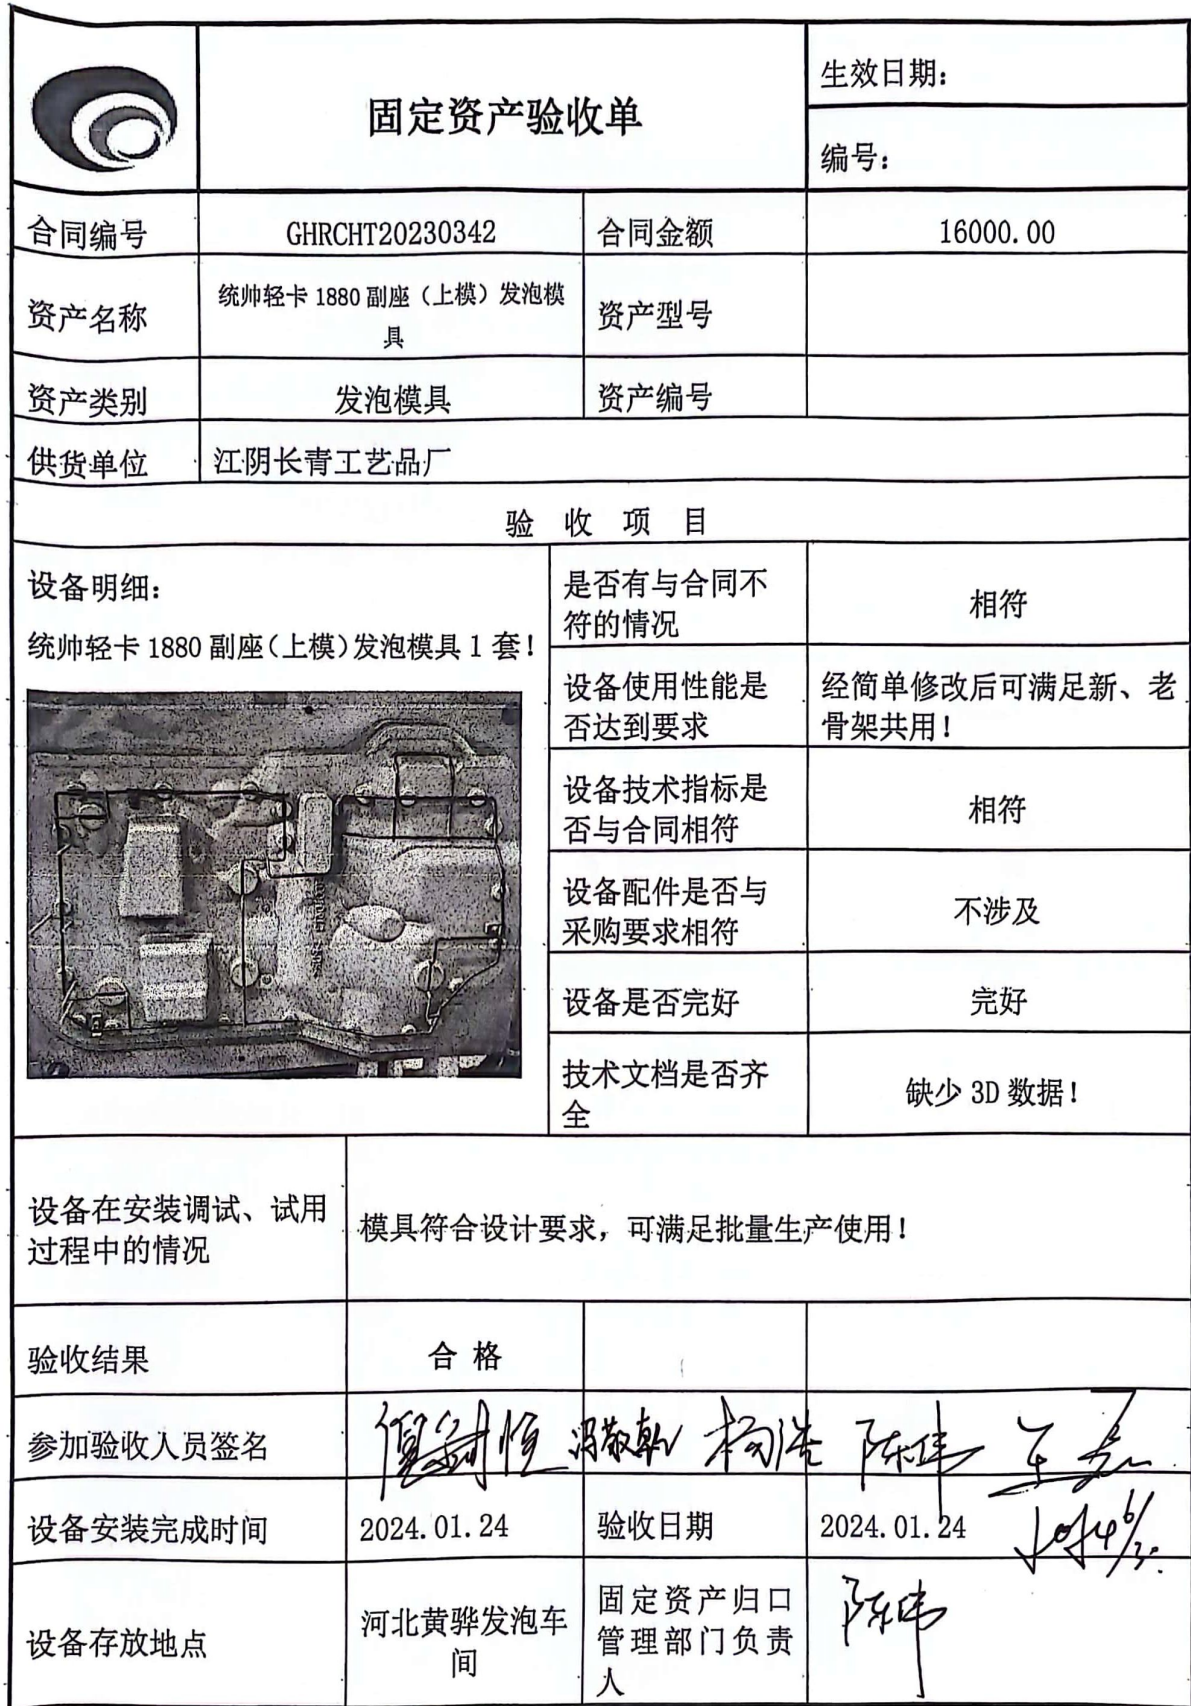 固定资产验收单
生效日期:
编号:
合同编号 GHRCHT20230342 合同金额 16000.00
资产名称 统帅轻卡 1880 副座（上模）发泡模
具
资产型号
资产类别 发泡模具 资产编号
供货单位 江阴长青工艺品厂
验 收 项 目
设备明细:
统帅轻卡 1880 副座(上模)发泡模具 1 套!
是否有与合同不
符的情况
相符
设备使用性能是
否达到要求
经简单修改后可满足新、老
骨架共用!
设备技术指标是
否与合同相符
相符
设备配件是否与
采购要求相符
不涉及
设备是否完好 完好
技术文档是否齐
全
缺少 3D 数据!
设备在安装调试、试用
过程中的情况
模具符合设计要求，可满足批量生产使用!
验收结果 合 格
参加验收人员签名 杨浩 陈伟
设备安装完成时间 2024.01.24 验收日期 2024.01.24
设备存放地点
河北黄骅发泡车
间
固定资产归口
管理部门负责
人
陈伟